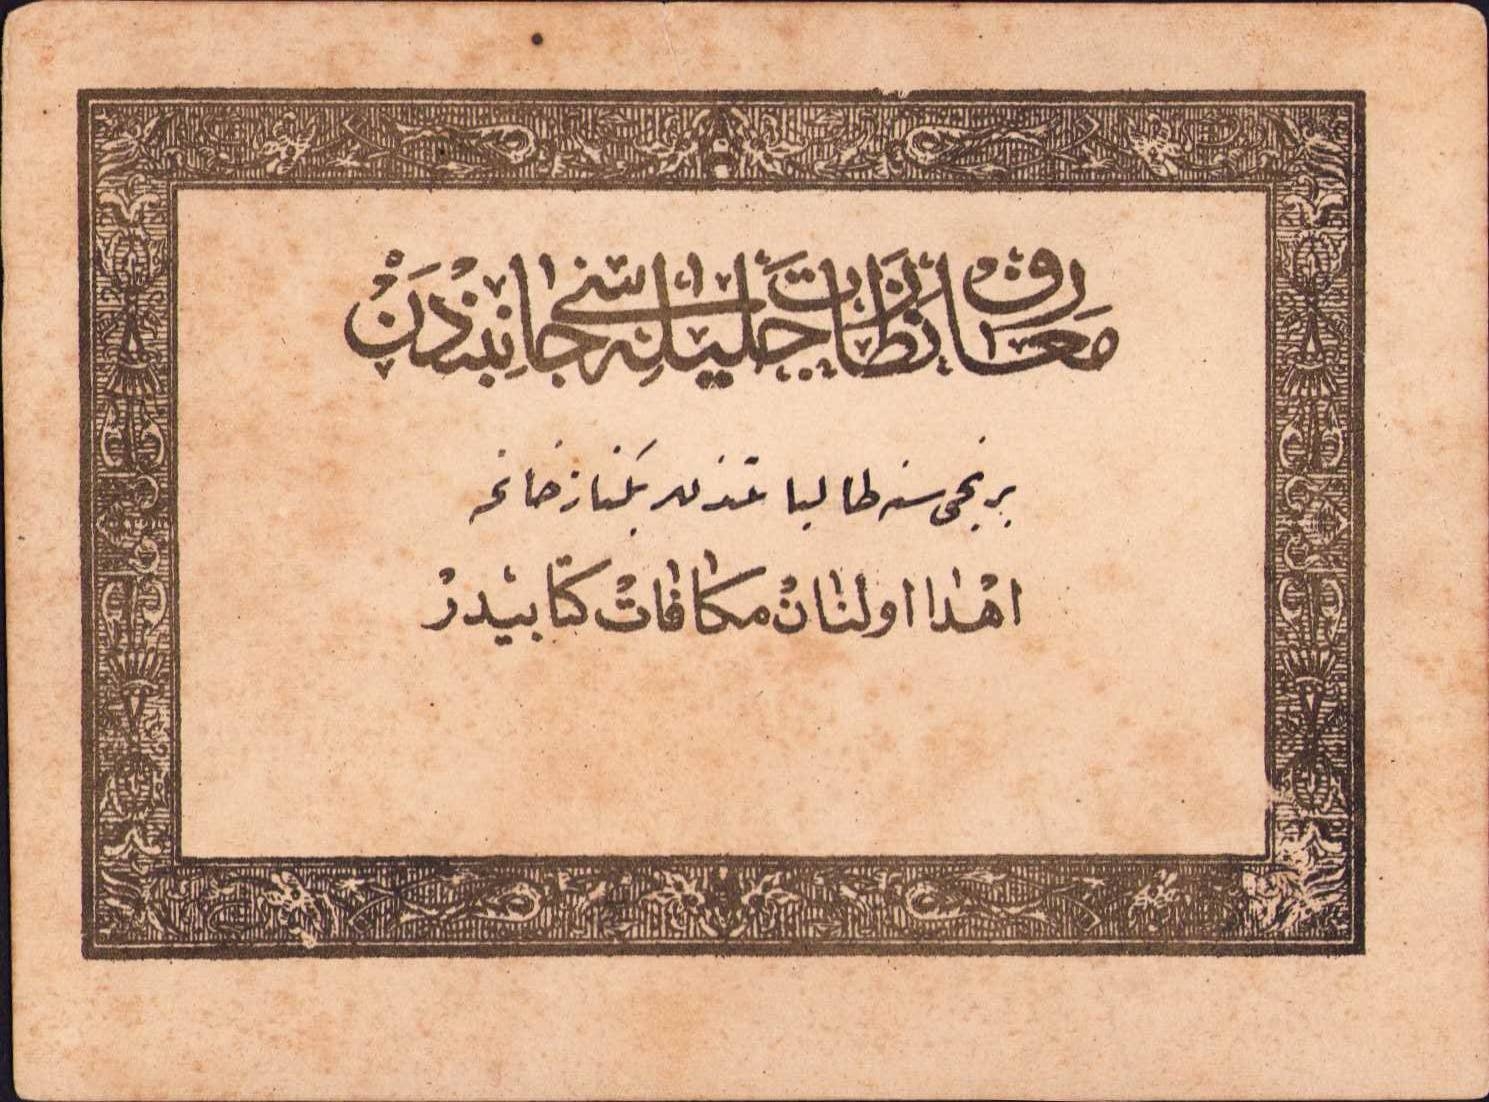 معارف نظارت جلیله‌سی جانبندن
برنجی سنه طالباتندن
اهدا اولنان مکافات کتابیدر